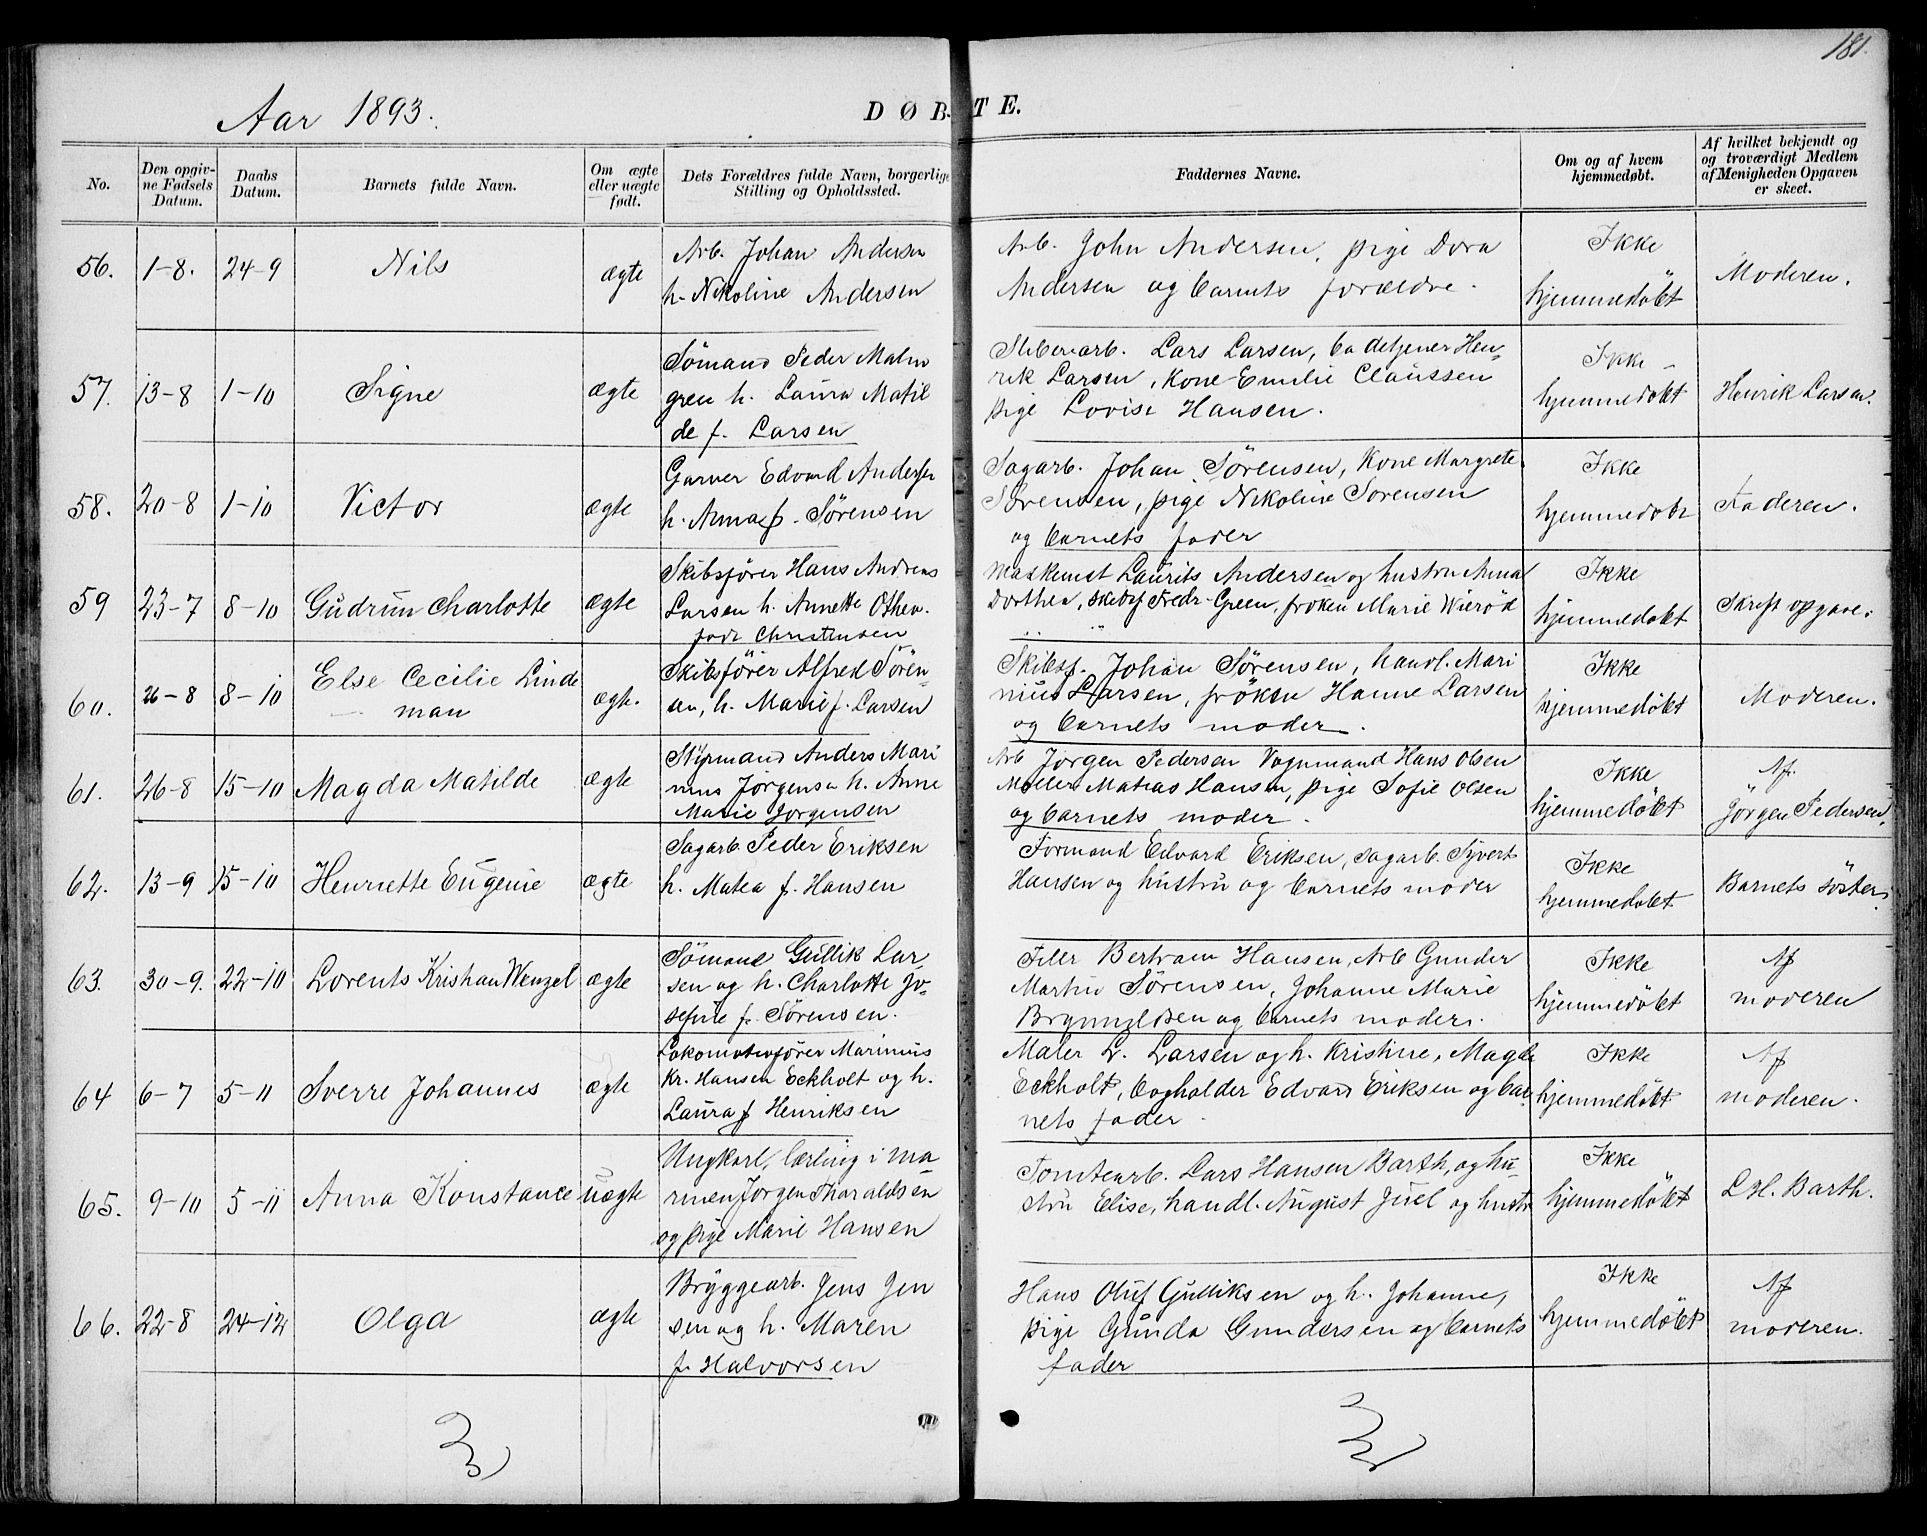 181.
Aar 1893.
DØBTE.
No.
Den opgivne Fødsels Datum.
Daabs Datum.
Barnets fulde Navn.
Om ægte eller uægte født.
Dets Forældres fulde Navn, borgerlige Stilling og Opholdssted.
Faddernes Navne.
Om og af hvem hjemmedøbt.
Af hvilket bekjendt og og troværdigt Medlem af Menigheden Opgaven er skeet.
56. 1-8. 24-9 Nils ægte
Arb. Johan Andersen
h. Nikoline Andersen
Arb. John Andersen, pige Dora
Andersen og barnets forældre.
Ikke
hjemmedøbt
Moderen.
57. 13-8 1-10 Signe ægte
Sømand Peder Malm
gren h. Laura Matil
de f. Larsen
Lars Larsen, badetjener Hen-
rik Larsen, Kone Emilie Claussen
pige Lovise Hansen.
Ikke -
hjemmedøbt
Henrik Larsen.
58. 20-8 1-10 Victor ægte
Garver Edvard Andersen
h. Anna f. Sørensen
Sagarb. Johan Sørensen, Kone Margrete
Sørensen, pige Nikoline Sørensen
og barnets fader
Ikke
hjemmedøbt
Faderen.
59 23-7 8-10 Gudrun Charlotte ægte
Skibsfører Hans Andreas
Larsen h. Annette Othea
født Christensen
Maskemst Laurits Andersen og hustru Anna
Dorthea, skibsf Fredr. Green, frøken Marie Wierød
Ikke
hjemmedøbt
Skrift opgave.
60. 26-8 8-10 Else Cecilie Linde
man ægte.
Skibsfører Alfred Søren-
sen, h. Marie f. Larsen
Skibsf. Johan Sørensen, handl. Mari
nius Larsen, frøken Hanne Larsen
og barnets moder.
Ikke
hjemmedøbt
Moderen.
61. 26-8 15-10 Magda Matilde ægte
Styrmand Anders Mari
nius Jørgensen h. Anne
Marie Jørgensen
Arb Jørgen Pedersen Vognmand Hans Olsen
Møller Matias Hansen, pige Sofie Olsen
og barnets moder.
Ikke
hjemmedøbt
Af.
Jørgen Pedersen.
62. 13-9 15-10 Henriette Eugenie ægte
Sagarb. Peder Eriksen
h. Matea f. Hansen
Formand Edvard Eriksen, sagarb. Syvert
Hansen og hustru og barnets moder
Ikke
hjemmedøbt
Barnets søster.
63. 30-9. 22-10 Lorents Kristian Wenzel ægte
Sømand Gullik Lar-
sen og h. Charlotte Jo-
sefine f. Sørensen.
Feler Bertram Hansen, Arb Gunder
Martin Sørensen, Johanne Marie
Brynnildsen og barnets moder.
Ikke
hjemmedøbt
Af
moderen
64 6-7 5-11 Sverre Johannes ægte
Lokomotivfører Marinius
Kr. Hansen Eckholt og h.
Laura f Henriksen
Maler L. Larsen og h. Kristine, Magda
Eckholt, bogholder Edvard Eriksen og bar-
nets fader.
Ikke
hjemmedøbt
Af
moderen.
65. 9-10 5-11 Anna Konstance uægte
Ungkarl, lærling i ma-
rinen Jørgen Tharaldsen
og pige Marie Hansen
Tomtearb. Lars Hansen Barth, og hu-
stru Elise, handl. August Juel og hustr
Ikke
hjemmedøbt
L.H. Barth.
66. 22-8 24-12 Olga ægte
Bryggearb. Jens Jen
sen og h. Maren
f. Halvorsen
Hans Oluf Gulliksen og h. Johanne,
pige Gunda Gundersen og barnets
fader
Ikke
hjemmedøbt
Af
moderen.